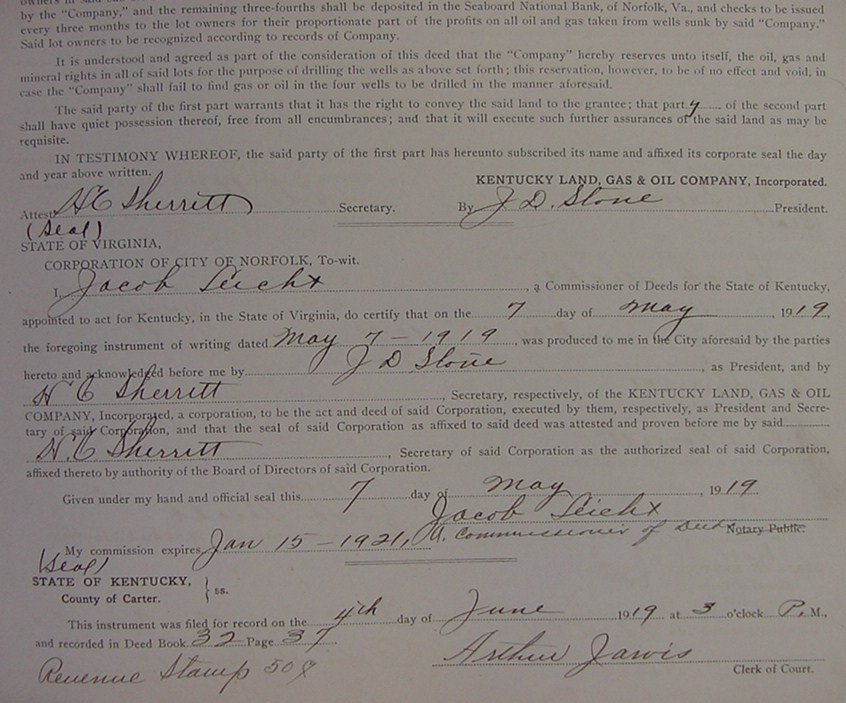 by the "Company," and the remaining three-fourths shall be deposited in the Seaboard National Bank, of Norfolk, Va., and checks to be issued
every three months to the lot owners for their proportionate part of the profits on all oil and gas taken from wells sunk by said "Company."
Said lot owners to be recognized according to records of Company.
It is understood and agreed as part of the consideration of this deed that the "Company" hereby reserves unto itself, the oil, gas and
mineral rights in all of said lots for the purpose of drilling the wells as above set forth; this reservation, however, to be of no effect and void, in
case the "Company" shall fail to find gas or oil in the four wells to be drilled in the manner aforesaid.
The said party of the first part warrants that it has the right to convey the said land to the grantee; that party of the second part
shall have quiet possession thereof, free from all encumbrances; and that it will execute such further assurances of the said land as may be
requisite.
IN TESTIMONY WHEREOF, the said party of the first part has hereunto subscribed its name and affixed its corporate seal the day
and year above written.
KENTUCKY LAND, GAS & OIL COMPANY, Incorporated.
Attest H C Sherritt Secretary. By J. D. Stone President.
(Seal)
STATE OF VIRGINIA,
CORPORATION OF CITY OF NORFOLK, To-wit.
I, Jacob Leicht, a Commissioner of Deeds for the State of Kentucky,
appointed to act for Kentucky, in the State of Virginia, do certify that on the 7 day of May, 1919,
the foregoing instrument of writing dated May 7 - 1919, was produced to me in the City aforesaid by the parties
hereto and acknowledged before me by J D Stone, as President, and by
H C Sherritt, Secretary, respectively, of the KENTUCKY LAND, GAS & OIL
COMPANY, Incorporated, a corporation, to be the act and deed of said Corporation, executed by them, respectively, as President and Secre-
tary of said Corporation, and that the seal of said Corporation as affixed to said deed was attested and proven before me by said
H. C Sherritt, Secretary of said Corporation as the authorized seal of said Corporation,
affixed thereto by authority of the Board of Directors of said Corporation.
Given under my hand and official seal this 7 day of May, 1919
Jacob Leicht
My commission expires Jan 15 - 1921, A. Commissioner of Deeds Notary Public.
(Seal)
STATE OF KENTUCKY,
County of Carter. } ss.
This instrument was filed for record on the 4th day of June 1919 at 3 o'clock P. M.,
and recorded in Deed Book 32 Page 37
Arthur Jarvis
Revenue Stamp 50¢
Clerk of Court.